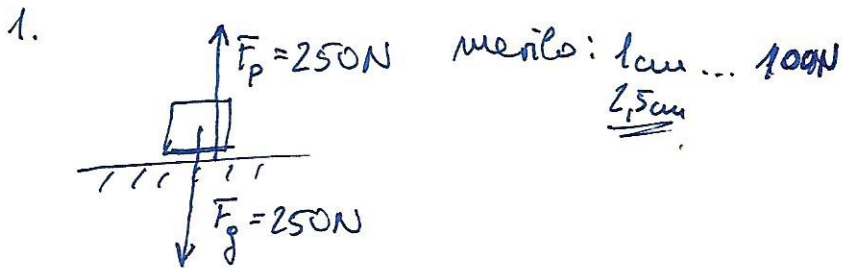 1.
F_p = 250N
merilo: 1cm ... 100N
2,5cm
F_g = 250N